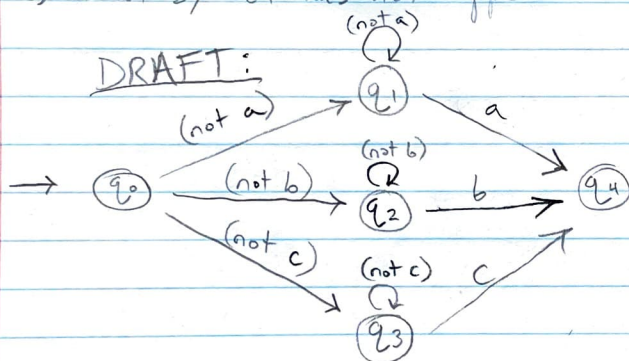 DRAFT:
(not a)
q1
(not a)
a
(not b)
q0
(not b)
q2
b
q4
(not c)
(not c)
q3
c